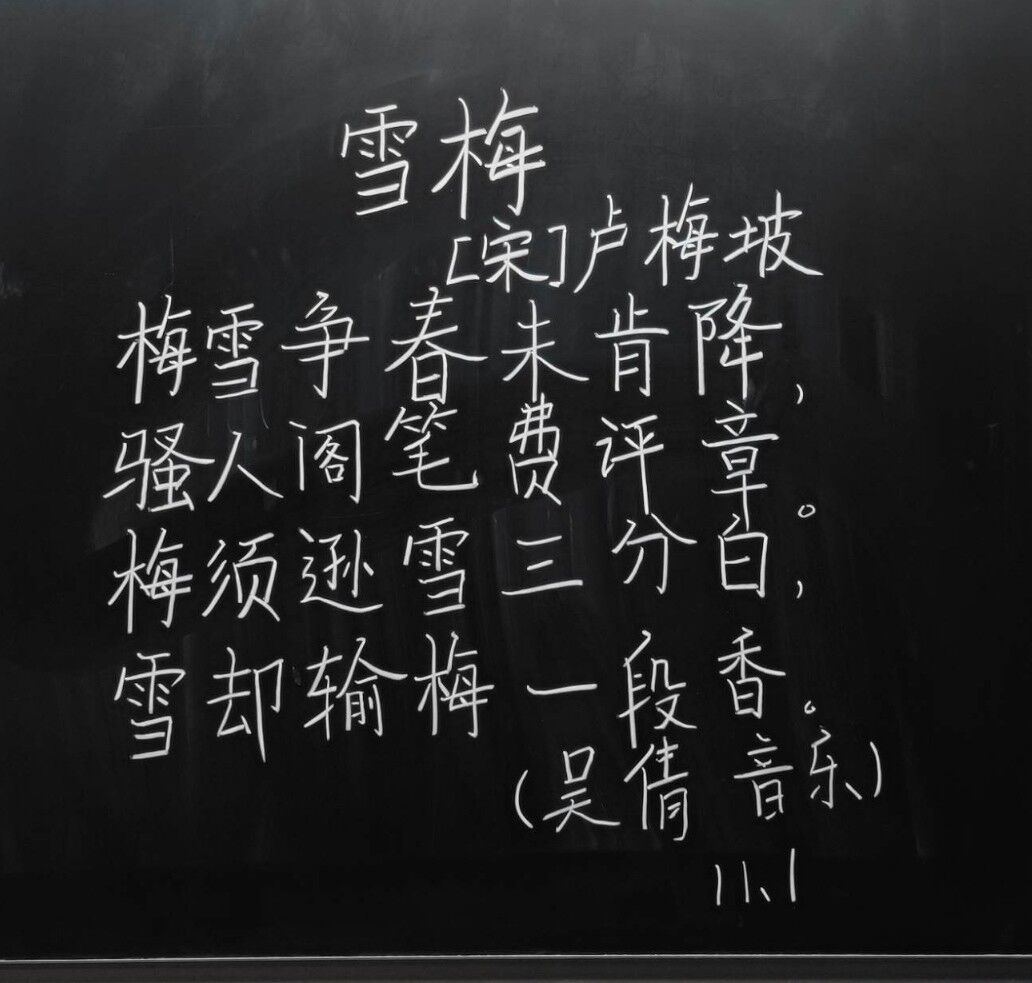 雪梅
[宋]卢梅坡
梅雪争春未肯降,
骚人阁笔费评章。
梅须逊雪三分白,
雪却输梅一段香。
(吴倩 音乐)
11、1